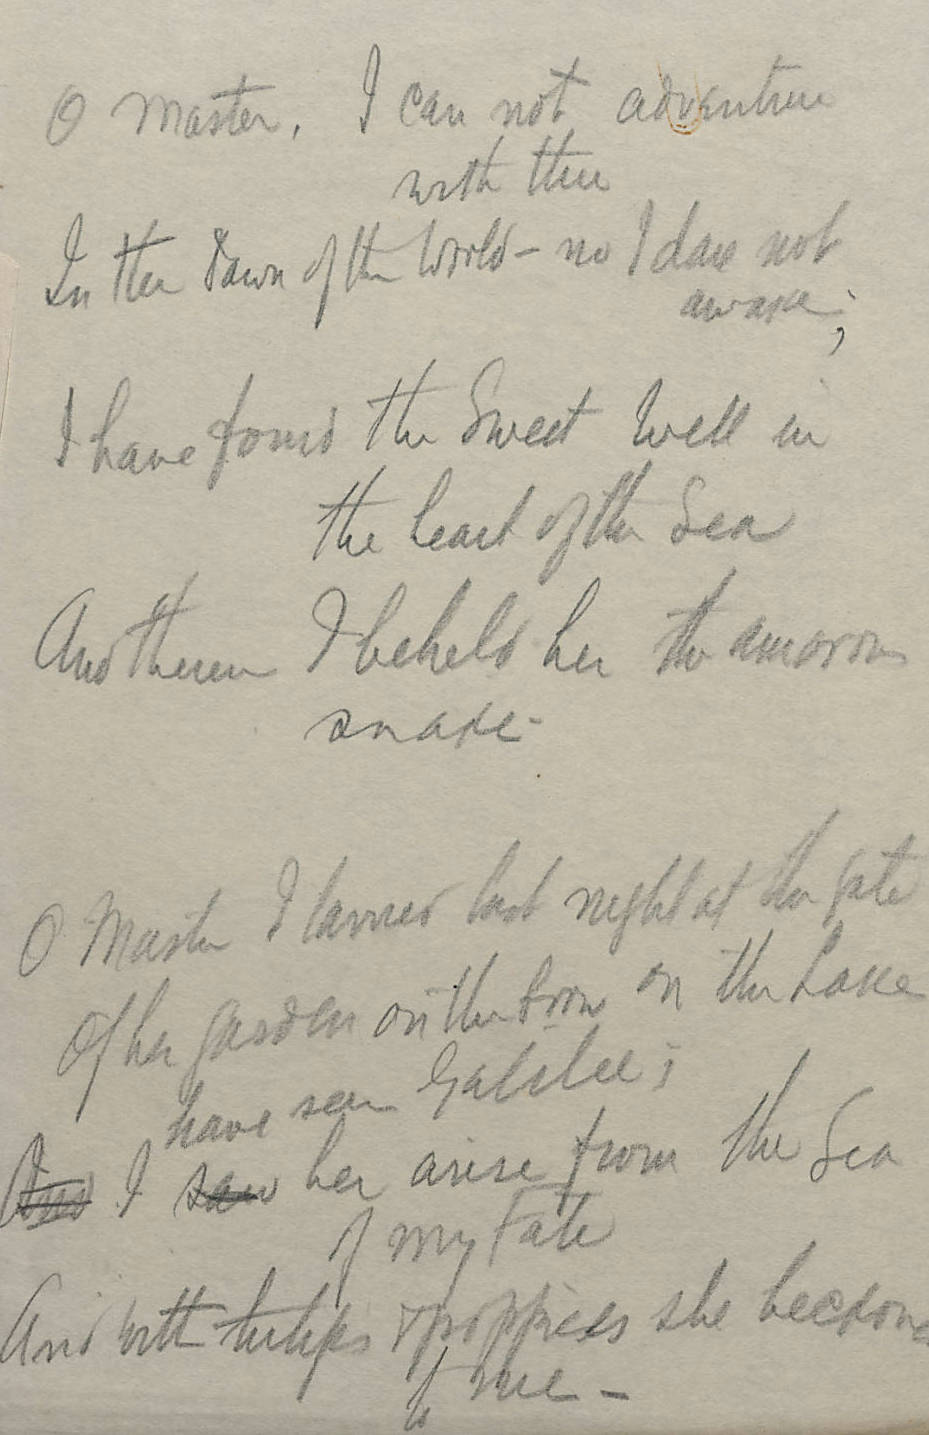 O Master, I can not adventure
with thee
In the Dawn of the World – no I dare not
awake;
I have found the Sweet Well in
the heart of the Sea
And therein I beheld her the amorous
snake –
O Master I tarried last night at the gate
Of her garden on the brow on the Lake
Galilee;
have seen
And I saw her arise from the Sea
of my Fate
And with tulips & poppies she beckoned
to me –